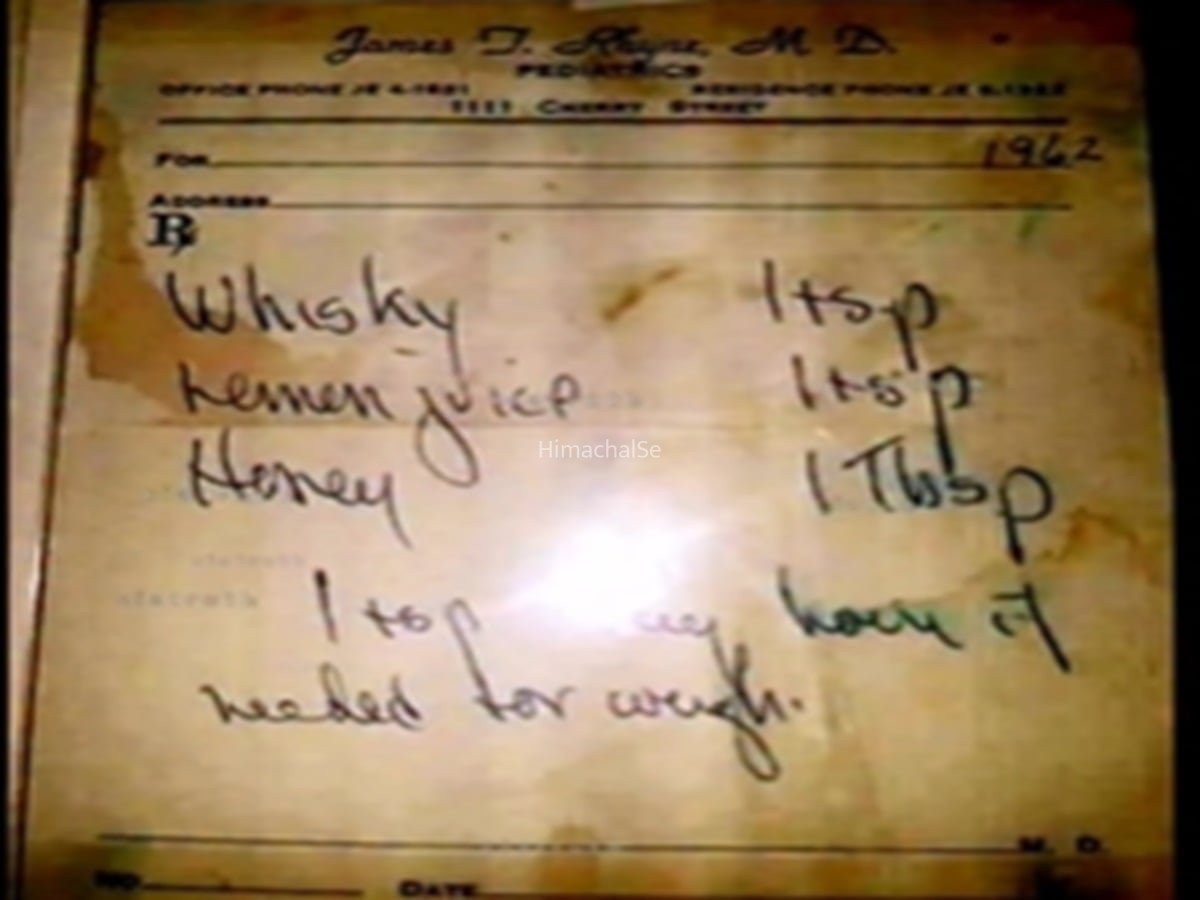 James T. Rhyne, M. D.
PEDIATRICS
OFFICE PHONE JE RESIDENCE PHONE JE
1111 CHERRY STREET
FOR 1962
ADDRESS
℞
Whisky 1 tsp
Lemon juice 1 tsp
Honey 1 Tbsp
HimachalSe
1 tsp hour if
needed for cough.
M. D.
NO DATE